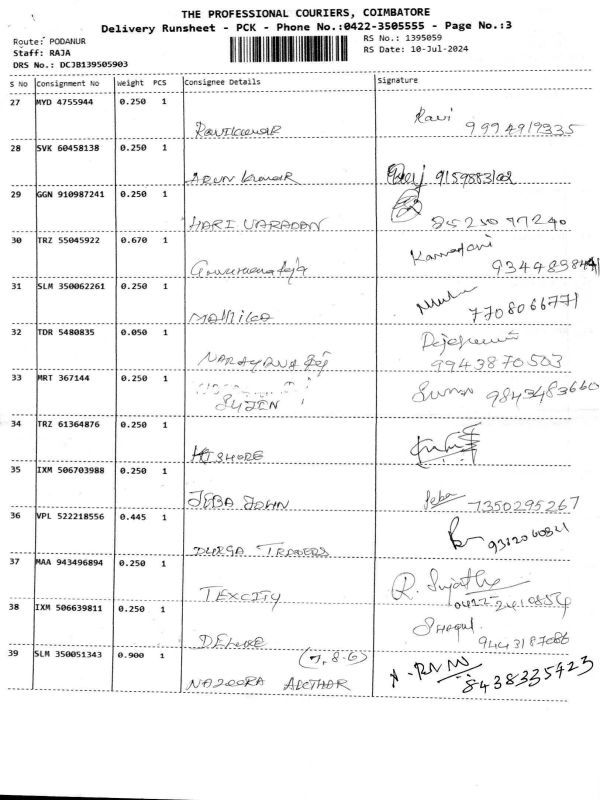 THE PROFESSIONAL COURIERS, COIMBATORE
Delivery Runsheet - PCK - Phone No.:0422-3505555 - Page No.:3
Route: PODANUR
RS No.: 1395059
Staff: RAJA
RS Date: 10-Jul-2024
DRS No.: DCJB139505903
S No Consignment No Weight PCS Consignee Details Signature
27 MYD 4755944 0.250 1
Ravikumar Ravi 9994919335
28 SVK 60458138 0.250 1
ARUN kumar 9159883102
29 GGN 910987241 0.250 1
HARI VARADAN 85250 77240
30 TRZ 55045922 0.670 1
31 SLM 350062261 0.250 1
Mallika 7708066771
32 TDR 5480835 0.050 1
NARAYANA 9943870503
33 MRT 367144 0.250 1
SUJIN 9843483660
34 TRZ 61364876 0.250 1
KISHORE
35 IXM 506703988 0.250 1
JEBA JOHN Jeba 7350295267
36 VPL 522218556 0.445 1
DURGA TRADERS
37 MAA 943496894 0.250 1
TEXCITY R. Sujatha
38 IXM 506639811 0.250 1
0422-2410854
DELUXE 9443187086
39 SLM 350051343 0.900 1 (7,8.6)
8438335423